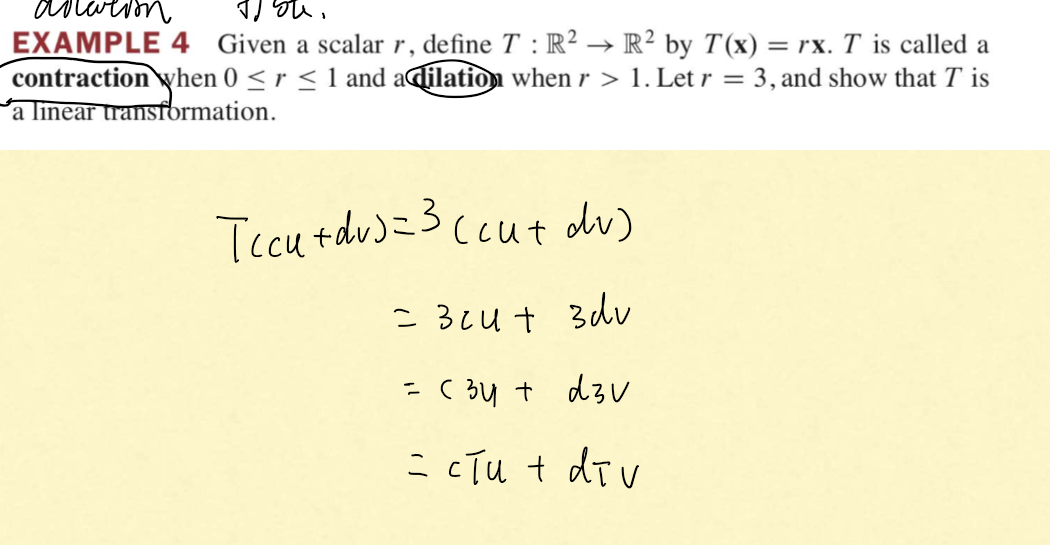 dilation
EXAMPLE 4 Given a scalar r, define T : ℝ² → ℝ² by T(x) = rx. T is called a
contraction when 0 ≤ r ≤ 1 and a dilation when r > 1. Let r = 3, and show that T is
a linear transformation.
T(cu+dv)=3(cu+dv)
= 3cu + 3dv
= c3u + d3v
= cTu + dTv